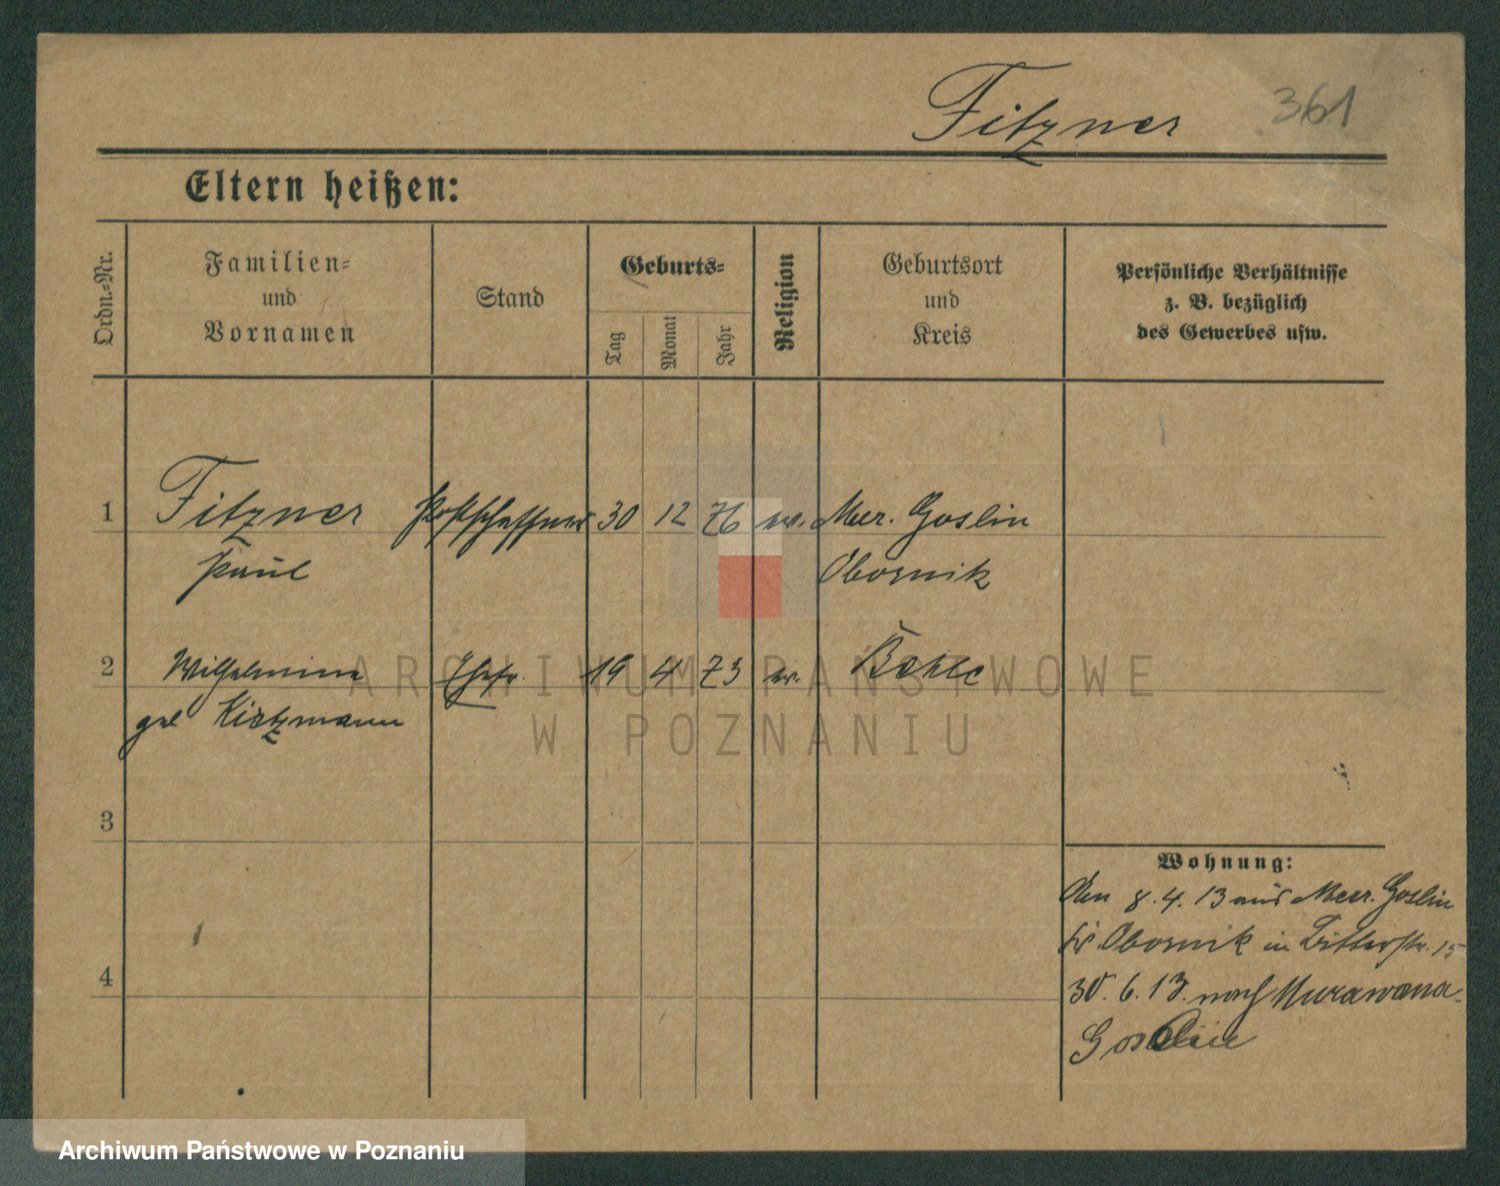 Fitzner 361
Eltern heißen:
Ordn.-Nr.
Familien-
und
Vornamen
Stand
Geburts-
Tag
Monat
Jahr
Religion
Geburtsort
und
Kreis
Persönliche Verhältnisse
z. B. bezüglich
des Gewerbes usw.
1 Fitzner Postschaffner 30 12 76 ev. Mur. Goslin
Paul Obornik
2 Wilhelmine Ehefr. 19 4 73 ev. Behle
geb Kietzmann
3
Wohnung:
Den 8.4.13 aus Mur. Goslin
Kr. Obornik in 15
4
30.6.13. nach Murawana-
Goslin
ARCHIWUM PAŃSTWOWE
W POZNANIU
Archiwum Państwowe w Poznaniu